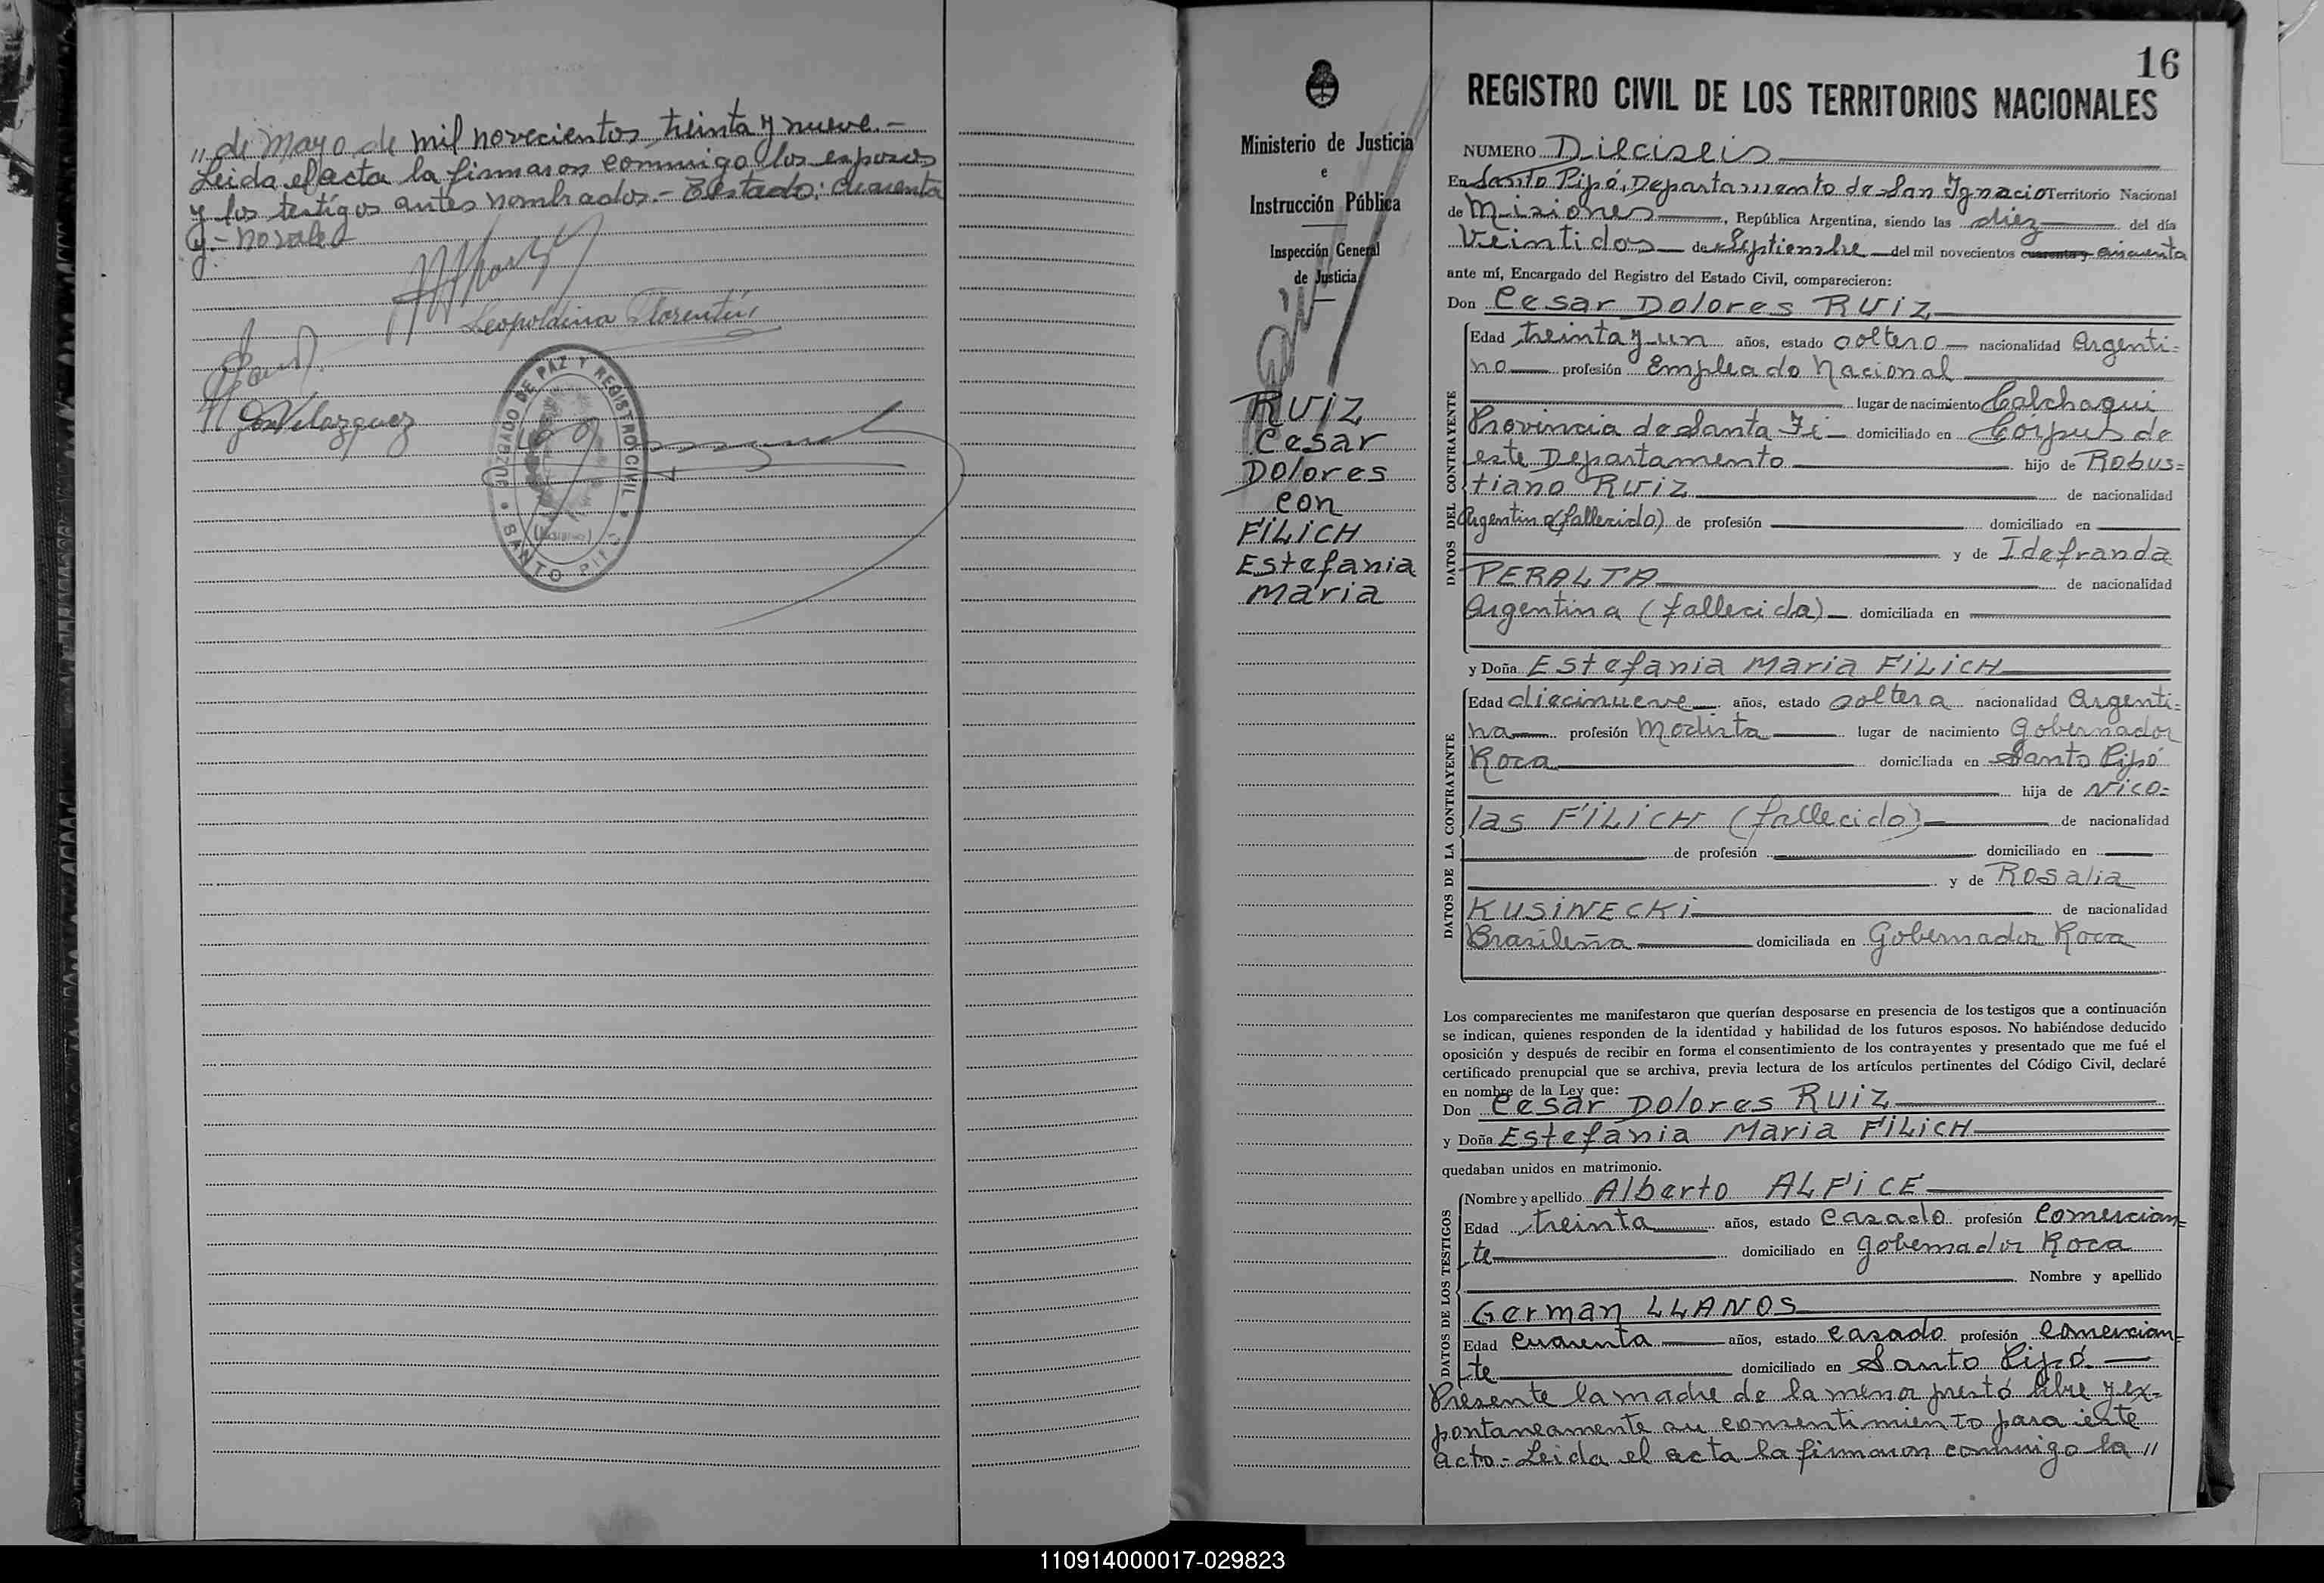 " de Mayo de mil novecientos treinta y nueve.-
Leida el acta la firmaron conmigo los esposos
y los testigos antes nombrados.- Testado: cuarenta
y.- no vale
Leopoldina Florentín
Velazquez
JUZGADO DE PAZ Y REGISTRO CIVIL
SANTO PIPÓ
16
REGISTRO CIVIL DE LOS TERRITORIOS NACIONALES
Ministerio de Justicia
e
Instrucción Pública
Inspección General
de Justicia
RUIZ
Cesar
Dolores
con
FILICH
Estefania
Maria
NUMERO Dieciseis
En Santo Pipó, Departamento de San Ignacio Territorio Nacional
de Misiones, República Argentina, siendo las diez del día
Veintidos de Septiembre del mil novecientos cuarenta y cincuenta
ante mí, Encargado del Registro del Estado Civil, comparecieron:
Don Cesar Dolores RUIZ
DATOS DEL CONTRAYENTE
Edad treinta y un años, estado soltero nacionalidad Argenti=
no profesión Empleado Nacional
lugar de nacimiento Calchaqui
Provincia de Santa Fé domiciliado en Corpus de
este Departamento hijo de Robus=
tiano RUIZ de nacionalidad
Argentino (fallecido) de profesión domiciliado en
y de Idefranda
PERALTA de nacionalidad
Argentina (fallecida) domiciliada en
y Doña Estefania Maria FILICH
DATOS DE LA CONTRAYENTE
Edad diecinueve años, estado soltera nacionalidad Argenti=
na profesión Modista lugar de nacimiento Gobernador
Roca domiciliada en Santo Pipó
hija de Nico=
las FILICH (fallecido) de nacionalidad
de profesión domiciliado en
y de Rosalia
KUSINECKI de nacionalidad
Brasileña domiciliada en Gobernador Roca
Los comparecientes me manifestaron que querían desposarse en presencia de los testigos que a continuación
se indican, quienes responden de la identidad y habilidad de los futuros esposos. No habiéndose deducido
oposición y después de recibir en forma el consentimiento de los contrayentes y presentado que me fué el
certificado prenupcial que se archiva, previa lectura de los artículos pertinentes del Código Civil, declaré
en nombre de la Ley que:
Don Cesar Dolores RUIZ
y Doña Estefania Maria FILICH
quedaban unidos en matrimonio.
DATOS DE LOS TESTIGOS
Nombre y apellido Alberto ALFICE
Edad treinta años, estado casado profesión Comercian=
te domiciliado en Gobernador Roca
Nombre y apellido
German LLANOS
Edad cuarenta años, estado casado profesión Comercian=
te domiciliado en Santo Pipó
Presente la madre de la menor prestó libre y ex-
pontaneamente su consentimiento para este
acto.- Leida el acta la firmaron conmigo la "
110914000017-029823